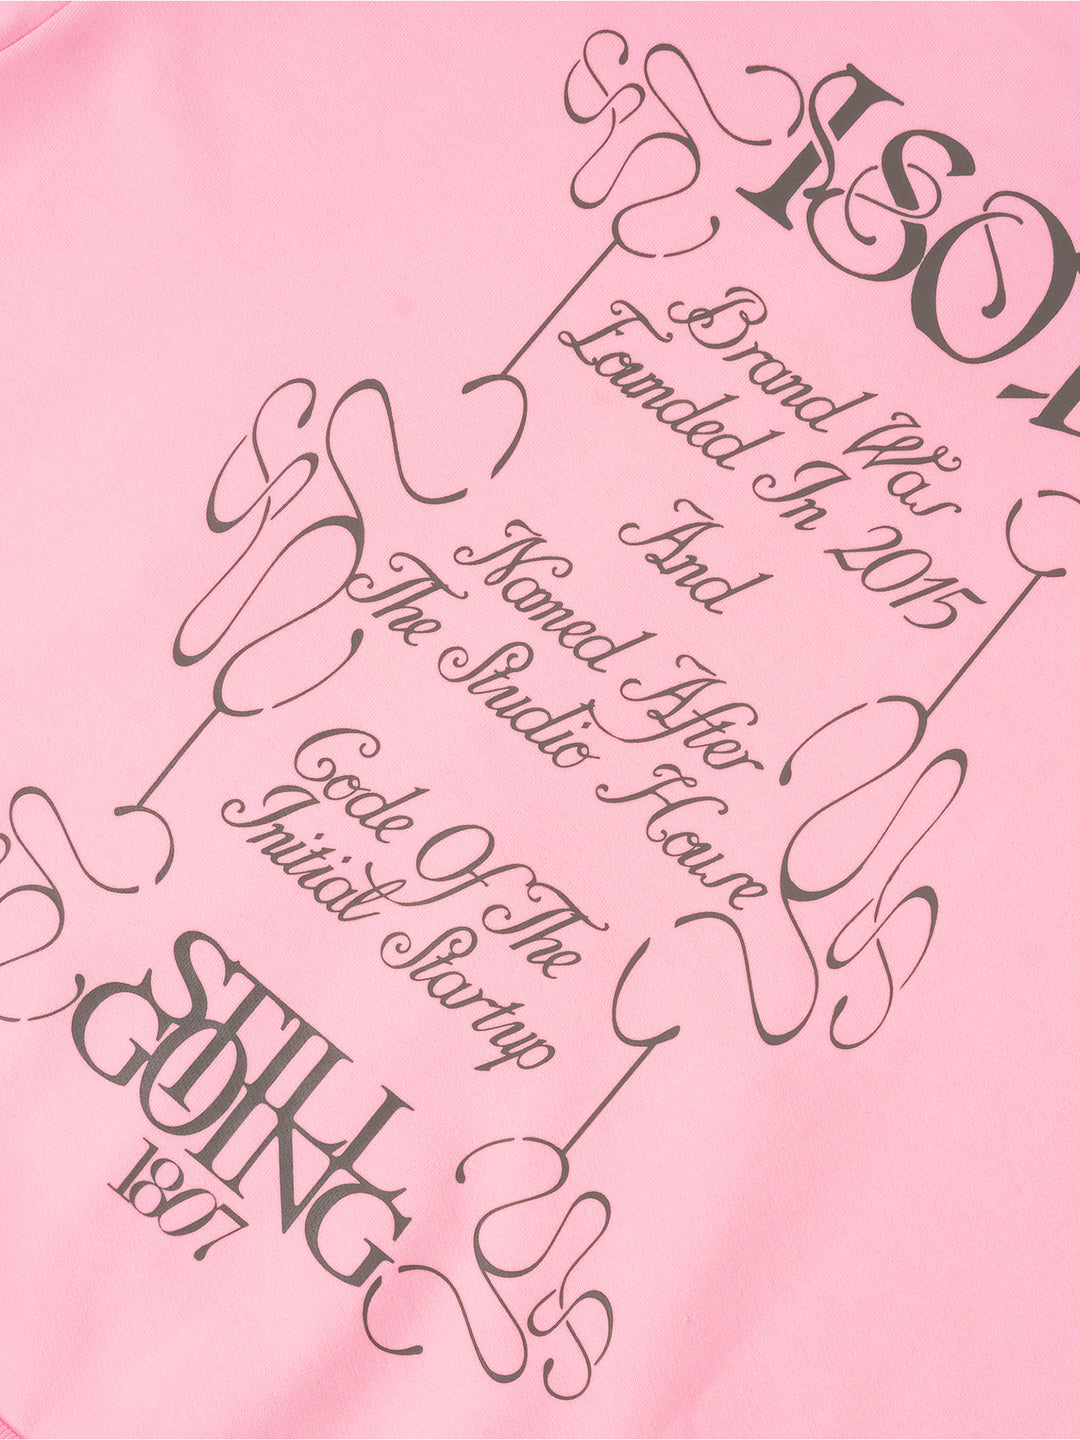 ISO
Brand Was
Founded In 2015
And
Named After
The Studio House
Code Of The
Initial Startup
STILL
GOING
1807